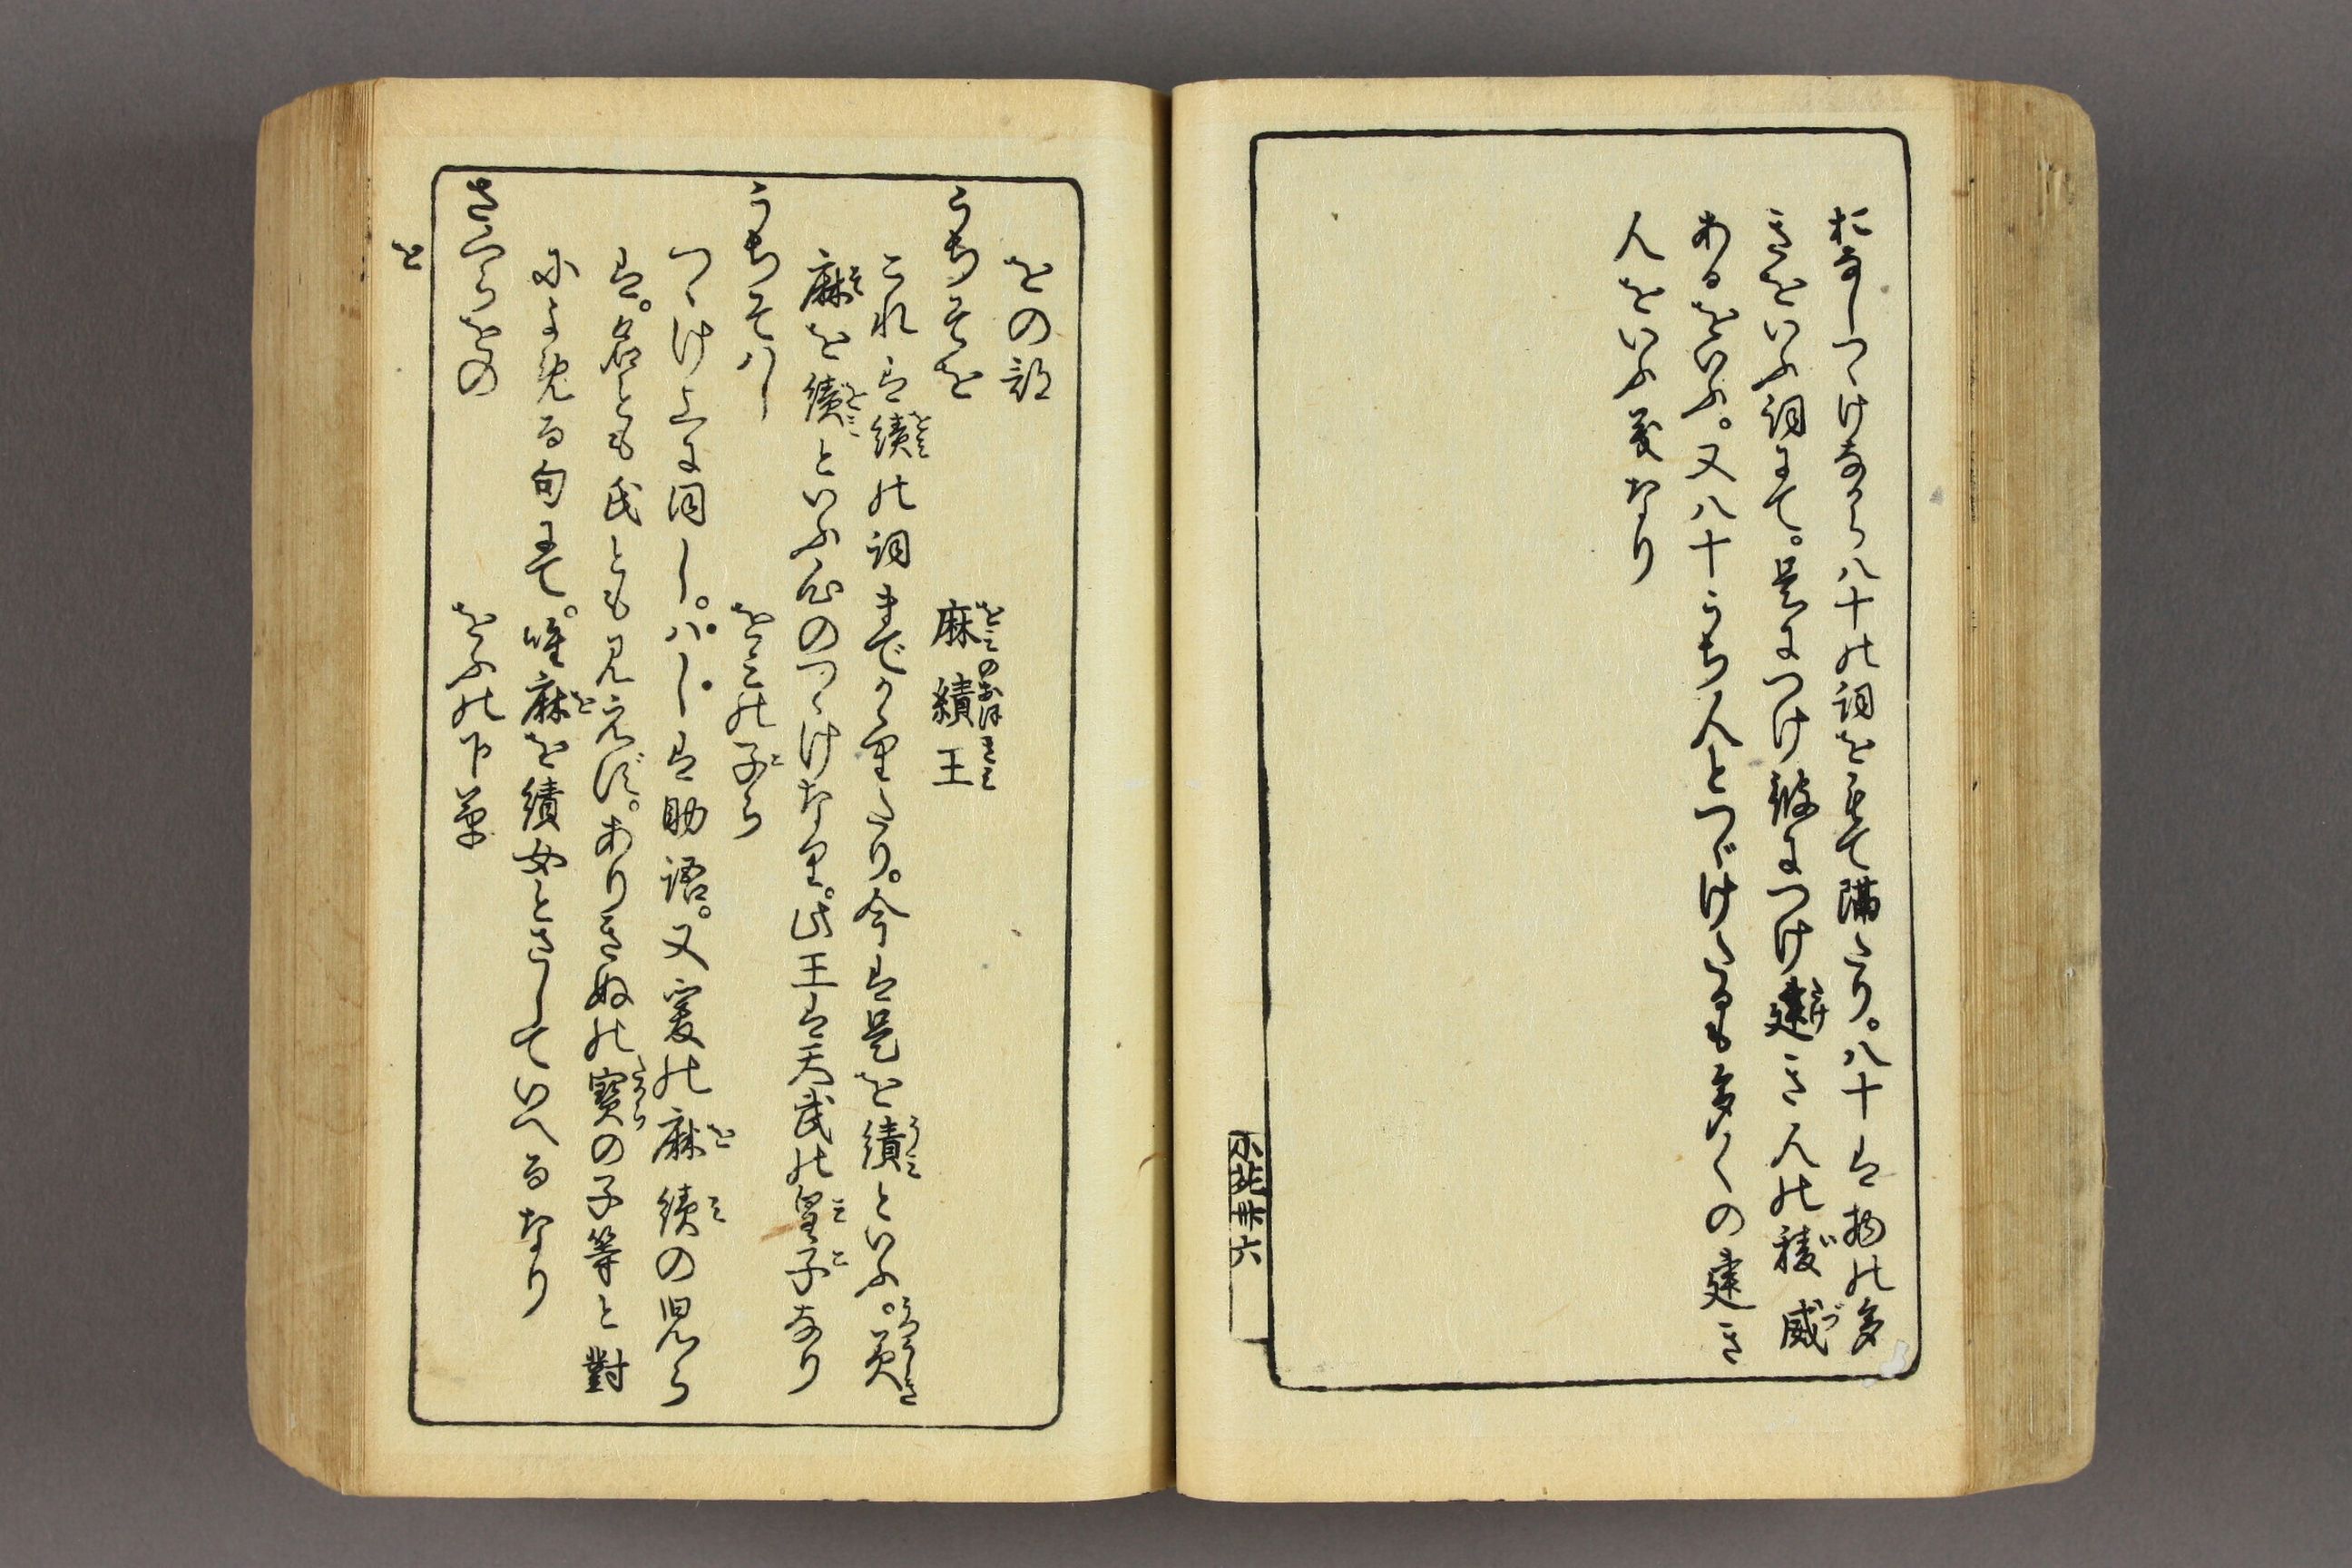 おなしつゝけなから八十の詞をもて隔たり。八十は物の多
きをいふ詞にて。是につけ彼につけ建き人の稜威
あるをいふ。又八十うち人とつゞけたるも多くの建き
人をいふ義なり
をの部
うちそを 麻績王
これは績の詞までかゝりたり。今は是を績といふ。
麻を績といふ心のつゝけなり。此王は天武の皇子なり
うちそはし をみの子ら
つゝけ上に同し。はしは助語。又爰の麻績の児ら
は。名とも氏とも見えず。ありきぬの寳の子等と對
によめる句にて。唯麻を績女とさしていへるなり
さつらをの をふの下草
を